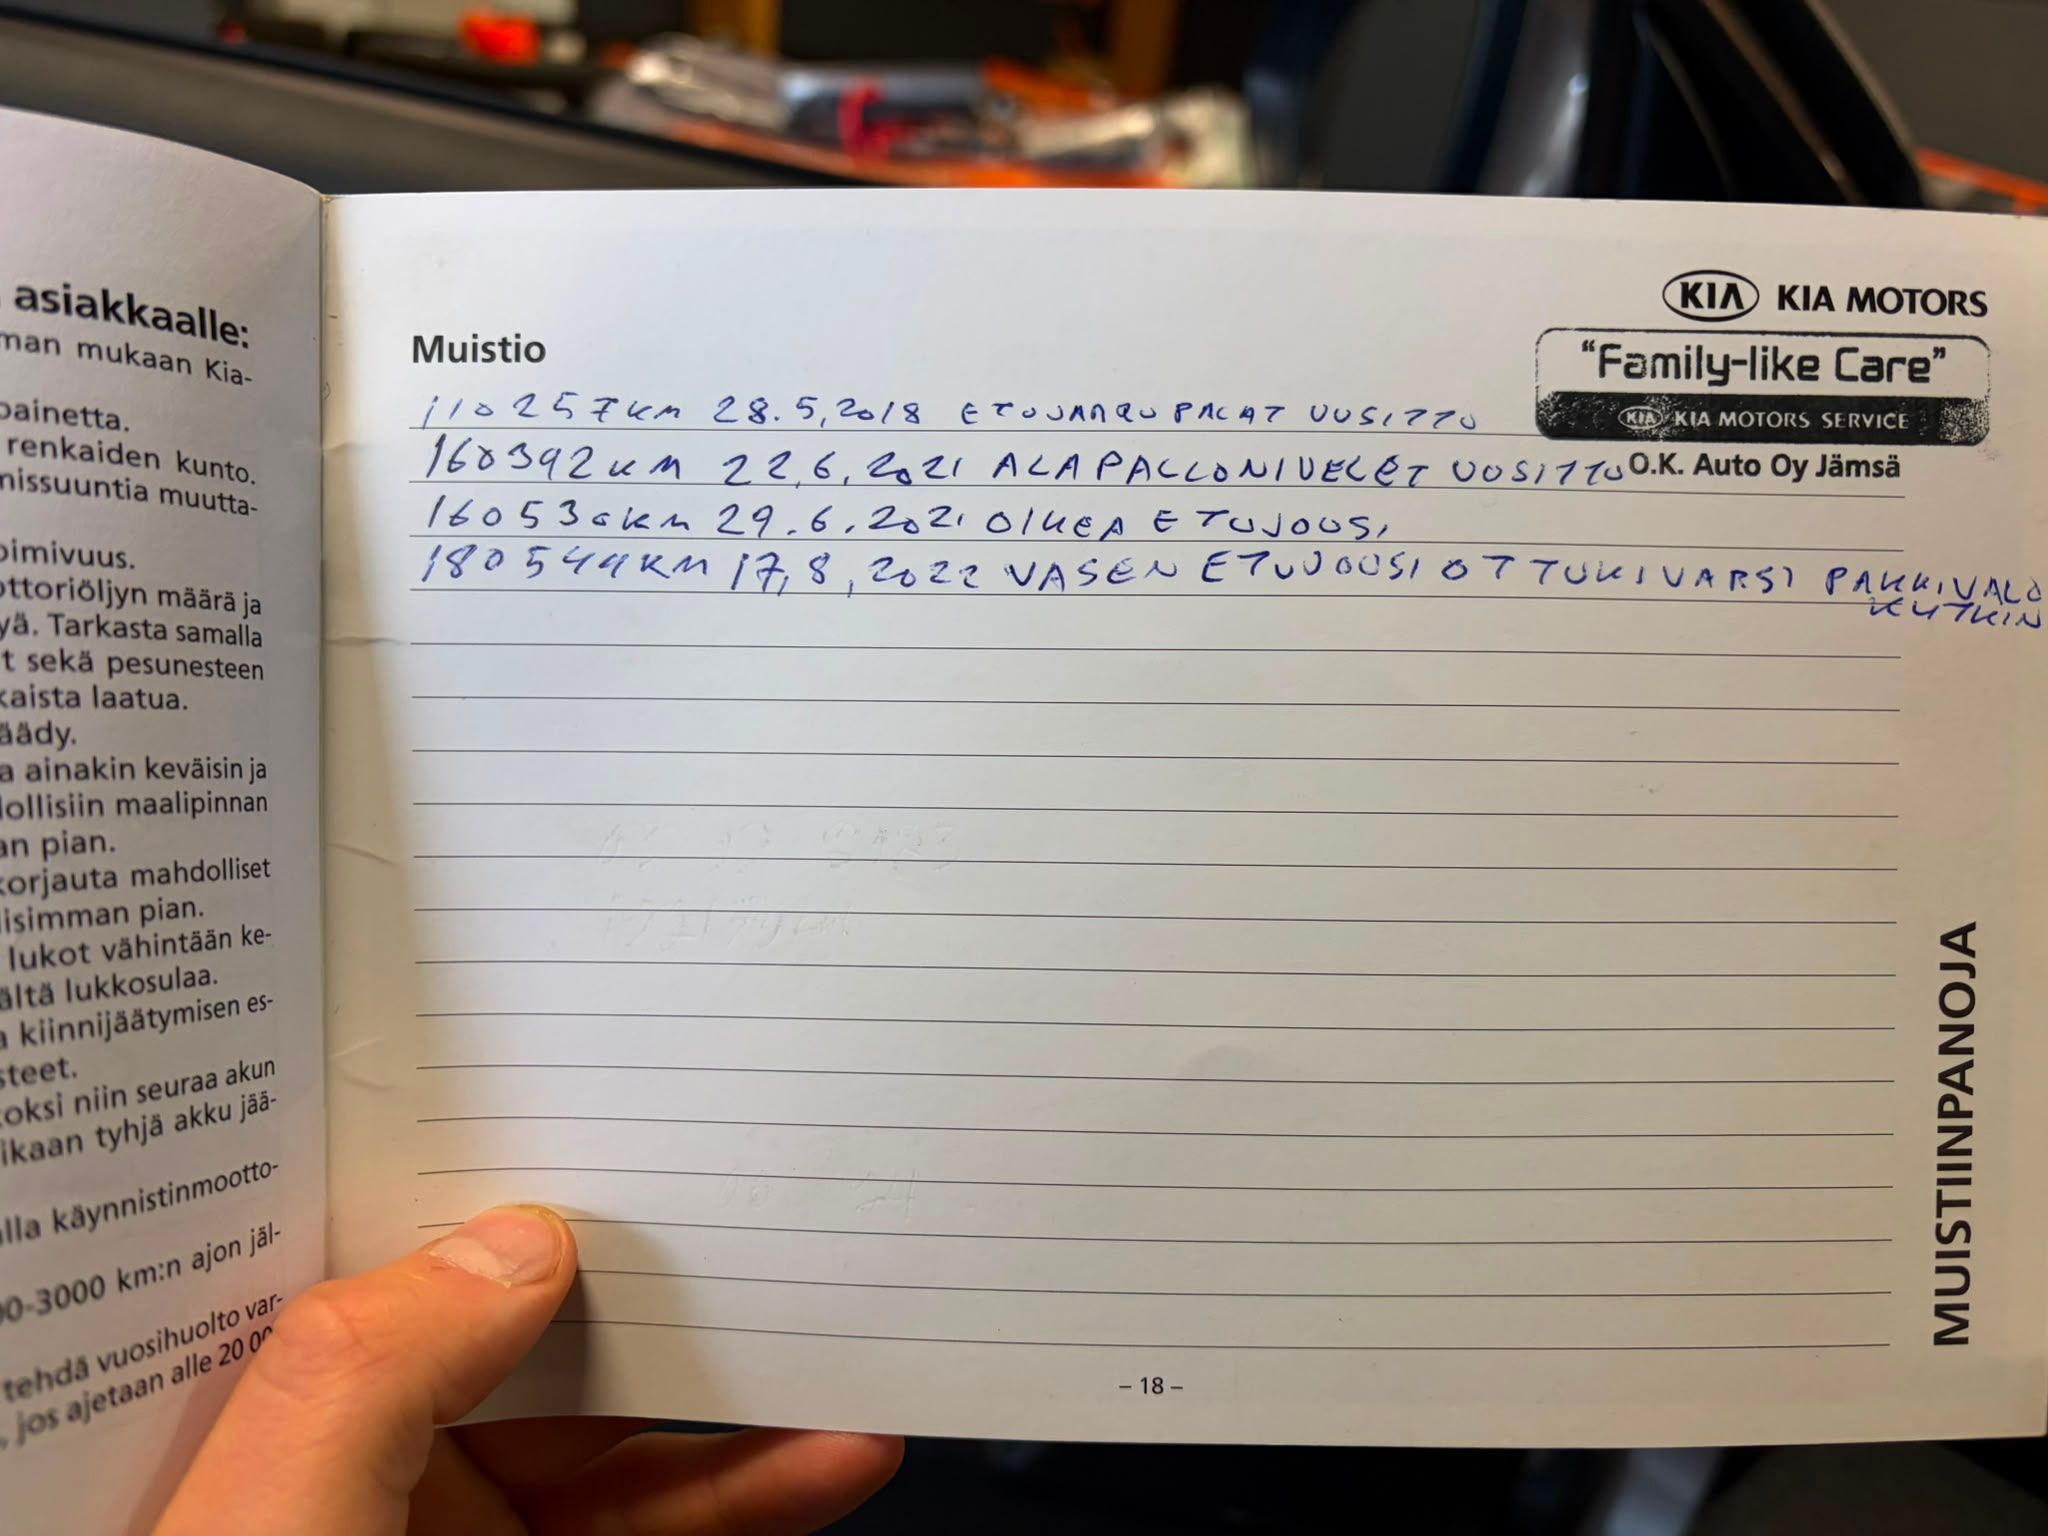 asiakkaalle:
man mukaan Kia-
painetta.
renkaiden kunto.
nissuuntia muutta-
oimivuus.
ottoriöljyn määrä ja
yä. Tarkasta samalla
t sekä pesunesteen
kaista laatua.
äädy.
a ainakin keväisin ja
lollisiin maalipinnan
an pian.
korjauta mahdolliset
lisimman pian.
lukot vähintään ke-
ältä lukkosulaa.
a kiinnijäätymisen es-
steet.
koksi niin seuraa akun
ikaan tyhjä akku jää-
alla käynnistinmootto-
00-3000 km:n ajon jäl-
tehdä vuosihuolto var-
, jos ajetaan alle 20 00
KIA KIA MOTORS
"Family-like Care"
KIA KIA MOTORS SERVICE
O.K. Auto Oy Jämsä
Muistio
110257KM 28.5,2018 ETUJARRUPALAT UUSITTU
160392KM 22,6,2021 ALAPALLONIVELET UUSITTU
160530KM 29.6.2021 OIKEA ETUJOUSI
180544KM 17,8,2022 VASEN ETUJOUSI OT TUKIVARSI PAKKIVALO
KYTKIN
MUISTIINPANOJA
– 18 –